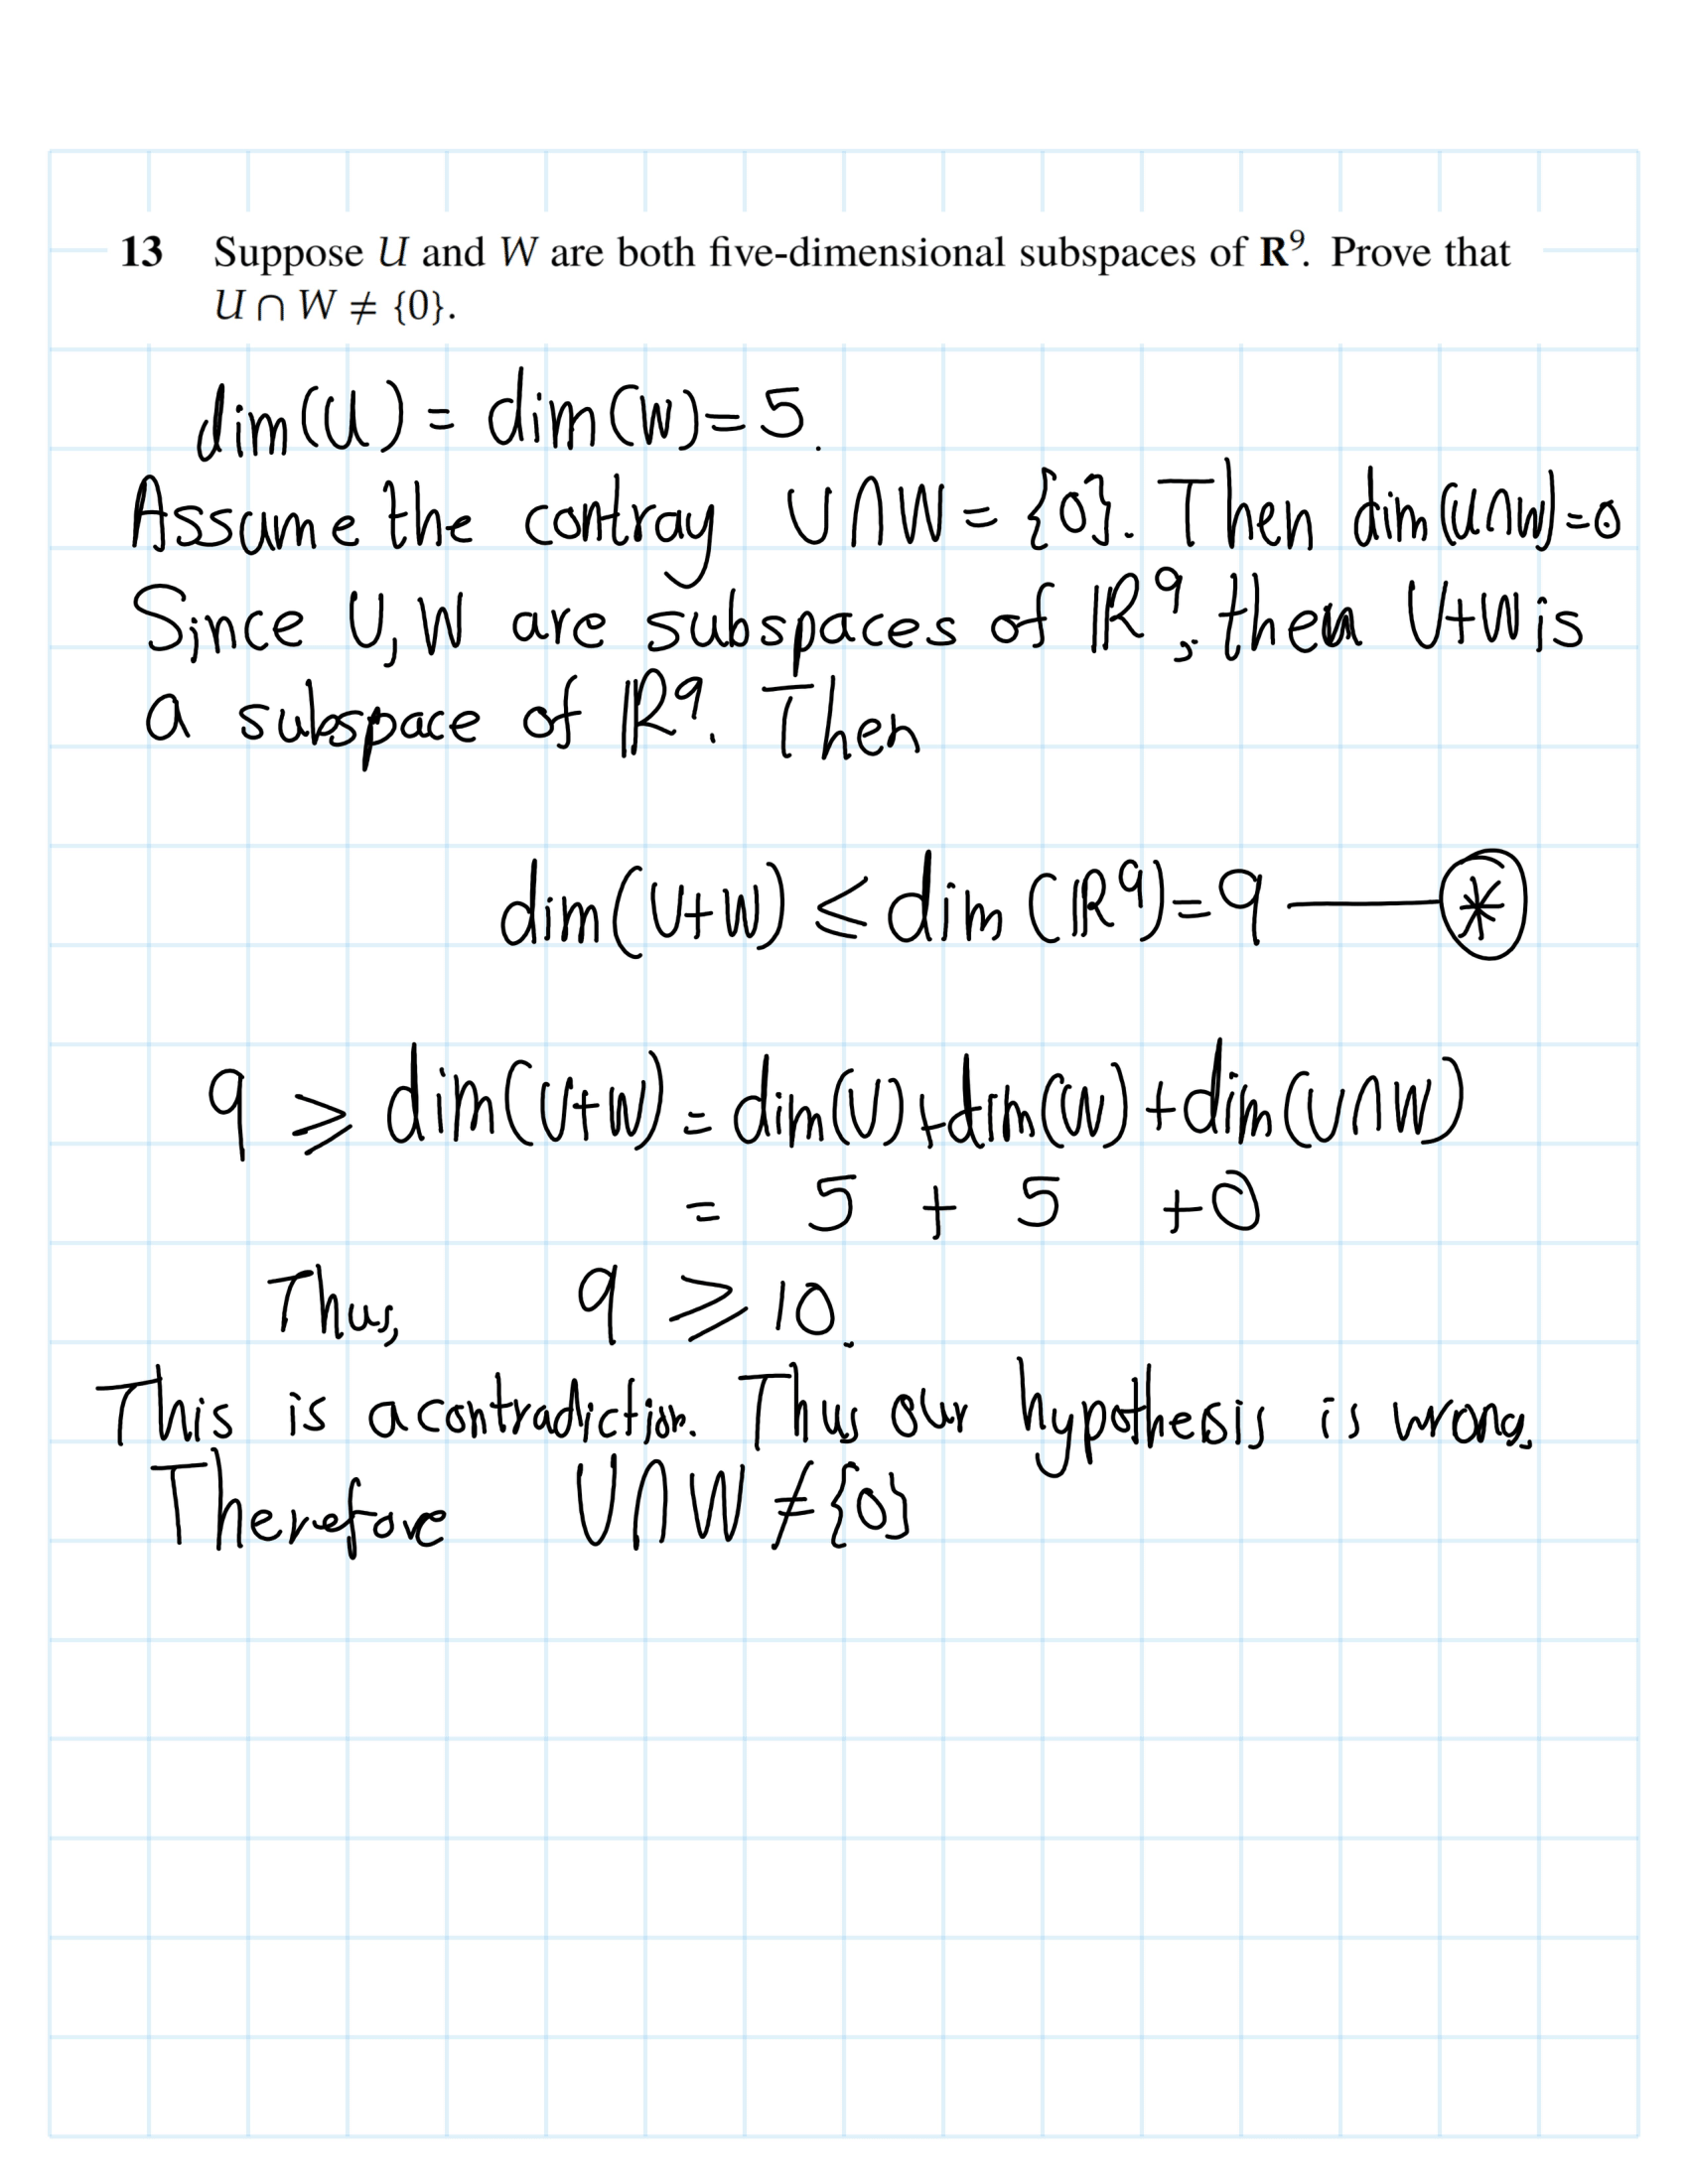 13 Suppose U and W are both five-dimensional subspaces of R⁹. Prove that
U ∩ W ≠ {0}.
dim(U) = dim(W) = 5.
Assume the contray U∩W = {0}. Then dim(U∩W) = 0
Since U, W are subspaces of ℝ⁹, then U+W is
a subspace of ℝ⁹. Then
dim(U+W) ≤ dim(ℝ⁹) = 9 —— ⊛
9 ≥ dim(U+W) = dim(U) + dim(W) + dim(U∩W)
= 5 + 5 + 0
Thus, 9 ≥ 10.
This is a contradiction. Thus our hypothesis is wrong.
Therefore U∩W ≠ {0}